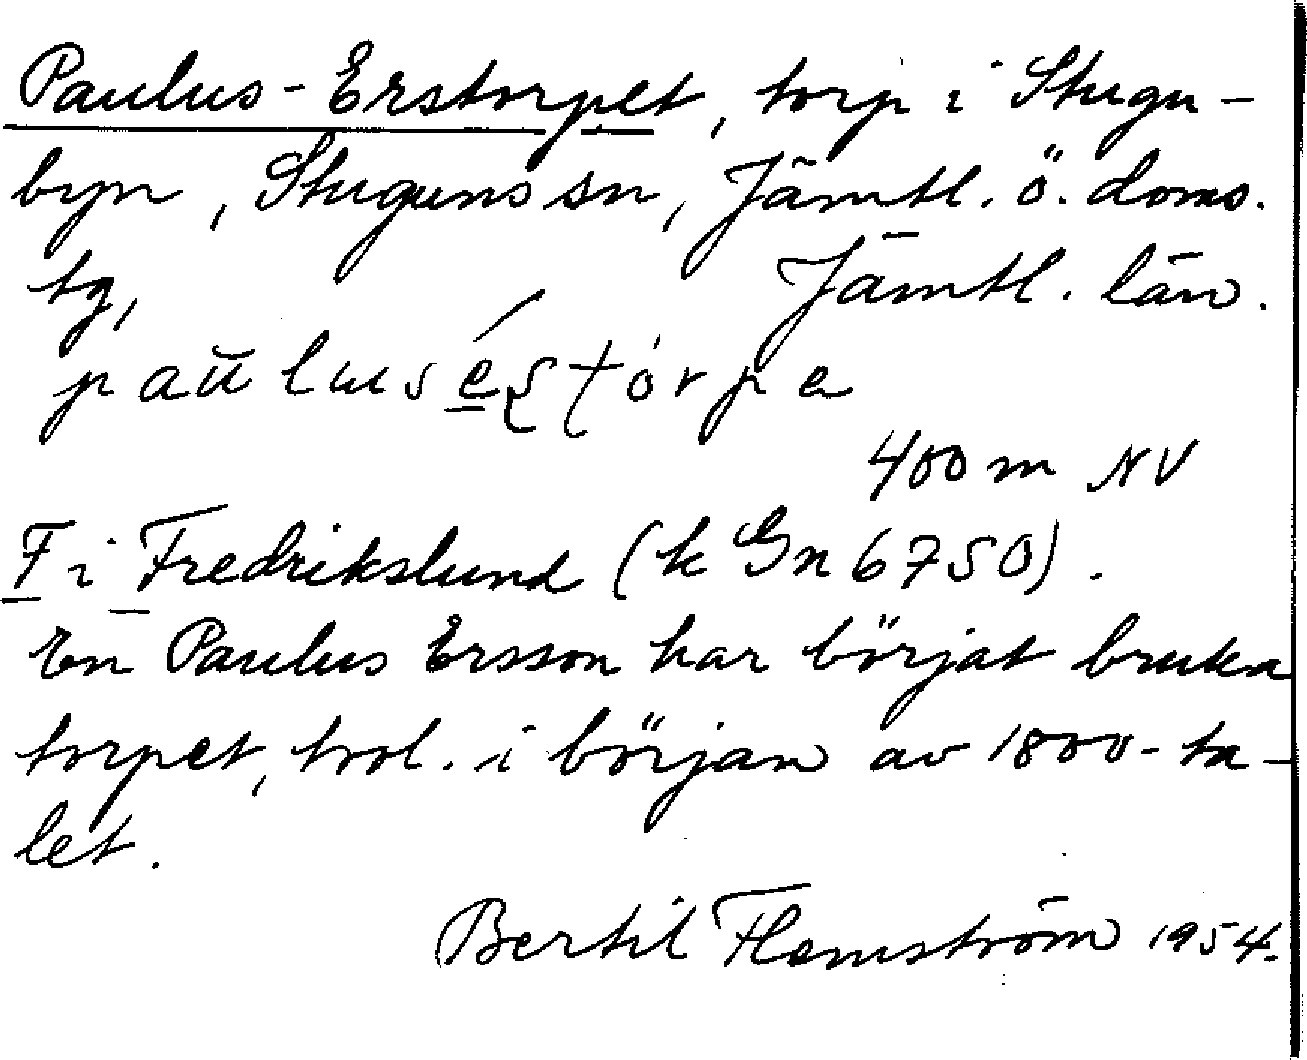 Paulus-Erstorpet, torp i Stugu-
byn, Stuguns sn, Jämtl. ö. doms.
tg, Jämtl. län.
400 m NV
F i Fredrikslund (k Gn 6750).
En Paulus Ersson har börjat bruka
torpet, trol. i början av 1800-ta-
let.
Bertil Flemström 1954.